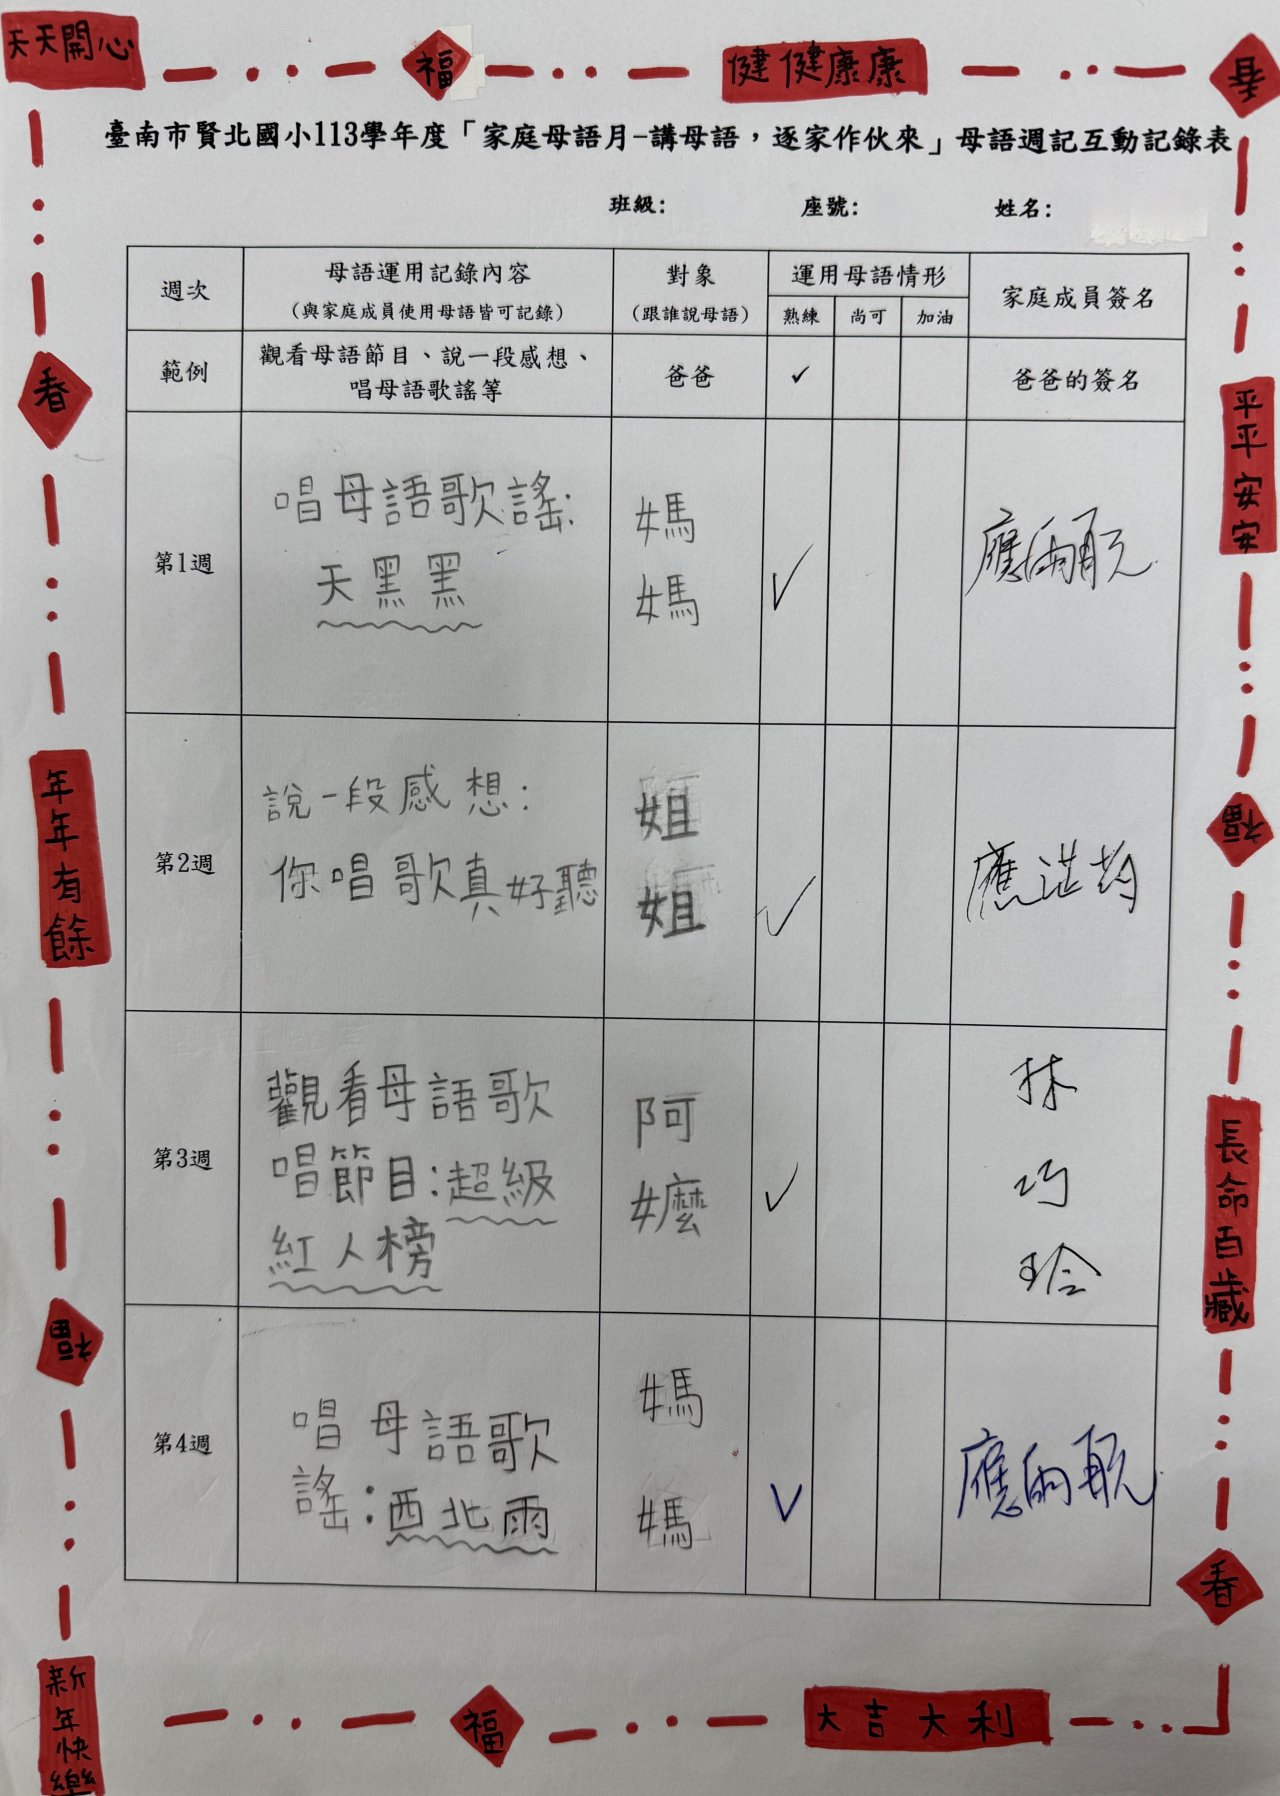 天天開心
福
健健康康
春
臺南市賢北國小113學年度「家庭母語月-講母語，逐家作伙來」母語週記互動記錄表
班級： 座號： 姓名：
週次 母語運用記錄內容 對象 運用母語情形 家庭成員簽名
（與家庭成員使用母語皆可記錄） （跟誰說母語） 熟練 尚可 加油
範例 觀看母語節目、說一段感想、 爸爸 ✓ 爸爸的簽名
唱母語歌謠等
第1週 唱母語歌謠: 媽
天黑黑 媽 ✓
第2週 說一段感想: 姐
你唱歌真好聽 姐 ✓
第3週 觀看母語歌 阿 林
唱節目:超級 嬤 ✓ 巧
紅人榜 玲
第4週 唱母語歌 媽
謠:西北雨 媽 ✓
春
年年有餘
福
新年快樂
平平安安
福
長命百歲
春
福
大吉大利